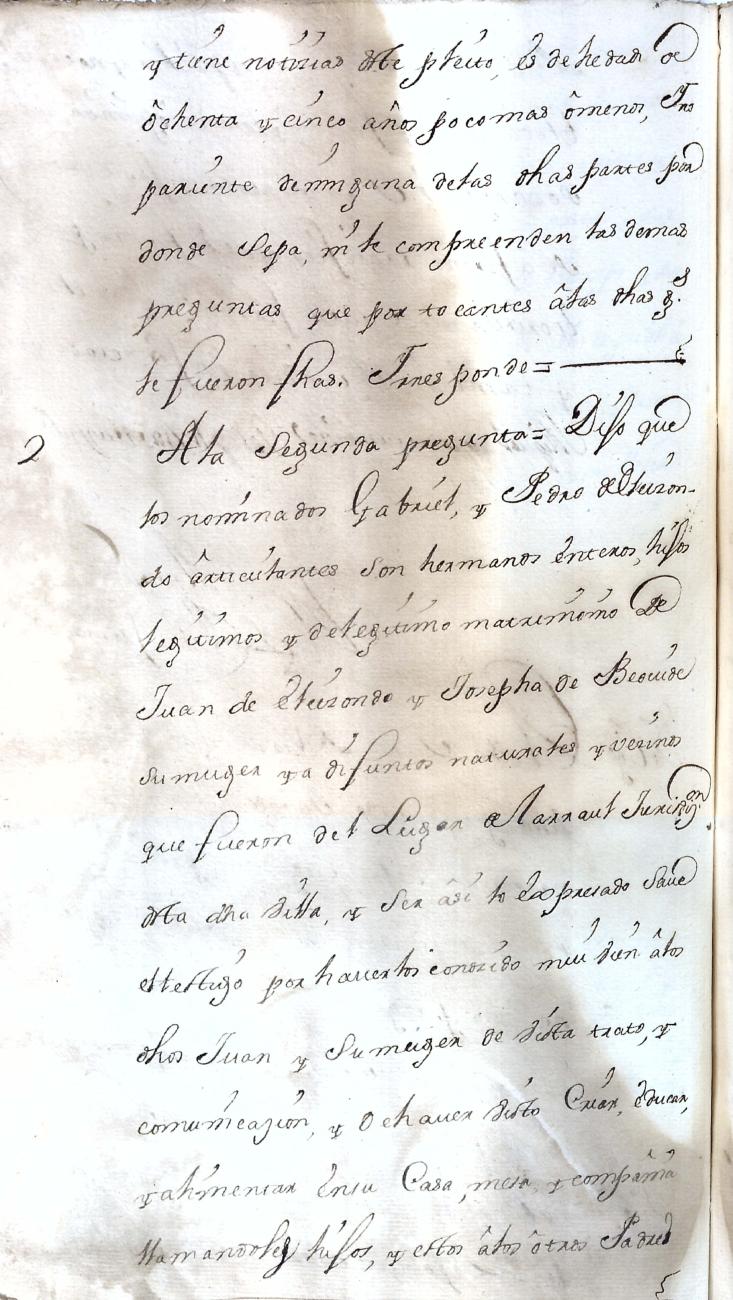 y tiene noticias deste pleito, es de hedad de
ochenta y cinco años poco mas ômenos, Ino
pariente deninguna delas dhas partes por
donde Sepa, nile compreenden las demas
preguntas que por tocantes âlas dhas g.s
le fueron fhas. Irresponde =
2 Ala Segunda pregunta = Dijo que
los nominados Gabriel, y Pedro de Elizon-
do ârticulantes son hermanos ênteros, hijos
legitimos y delegitimo matrimonio de
Juan de Elizondo y Josepha de
sumuger ya difuntos naturales y vezinos
que fueron del Lugar de Narraul Jurizon
desta dha Villa, y Ser âsi lo êxpresado Save
eltestigo por haverlos conozido mui bien âlos
dhos Juan y Sumuger de vista trato, y
comunicazion, y de haver visto Criar, êducar,
yalimentar ênsu Casa, mesa, y compañia
llamandoles hijos, y estos âlos ôtros Padres